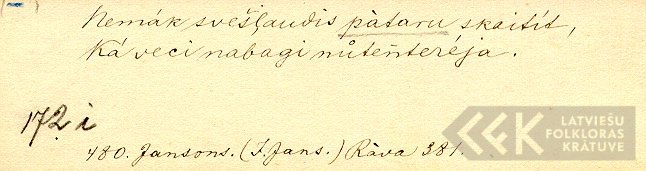 Nemák svešļaudis pàtaru skaitít,
Ká veci nabagi nůteñteréja.
172 i
480. Jansons. (J. Jans.) Ràva 381.
LATVIEŠU
FOLKLORAS
KRĀTUVE